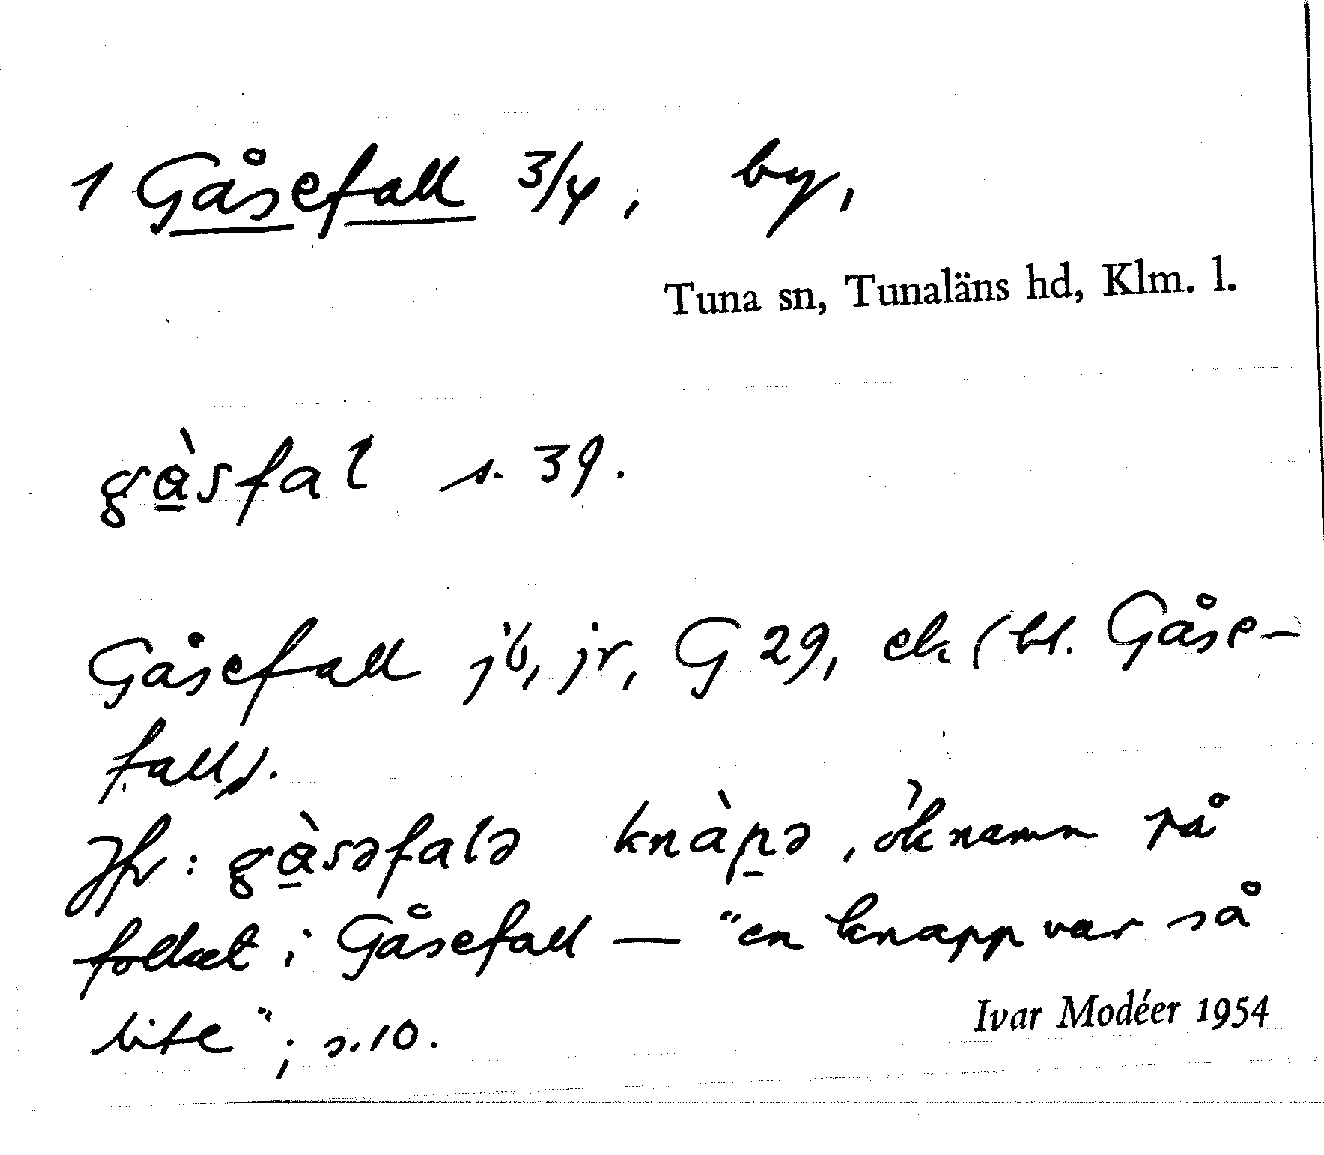 1 Gåsefall 3/4, by,
Tuna sn, Tunaläns hd, Klm. l.
gàsfal s. 39.
Gåsefall jb, jr, G 29, ek (bl. Gåse-
fall).
Jfr: gàsəfalə knàpə, öknamn på
folket i Gåsefall — "en knapp var så
bite"; s. 10.
Ivar Modéer 1954